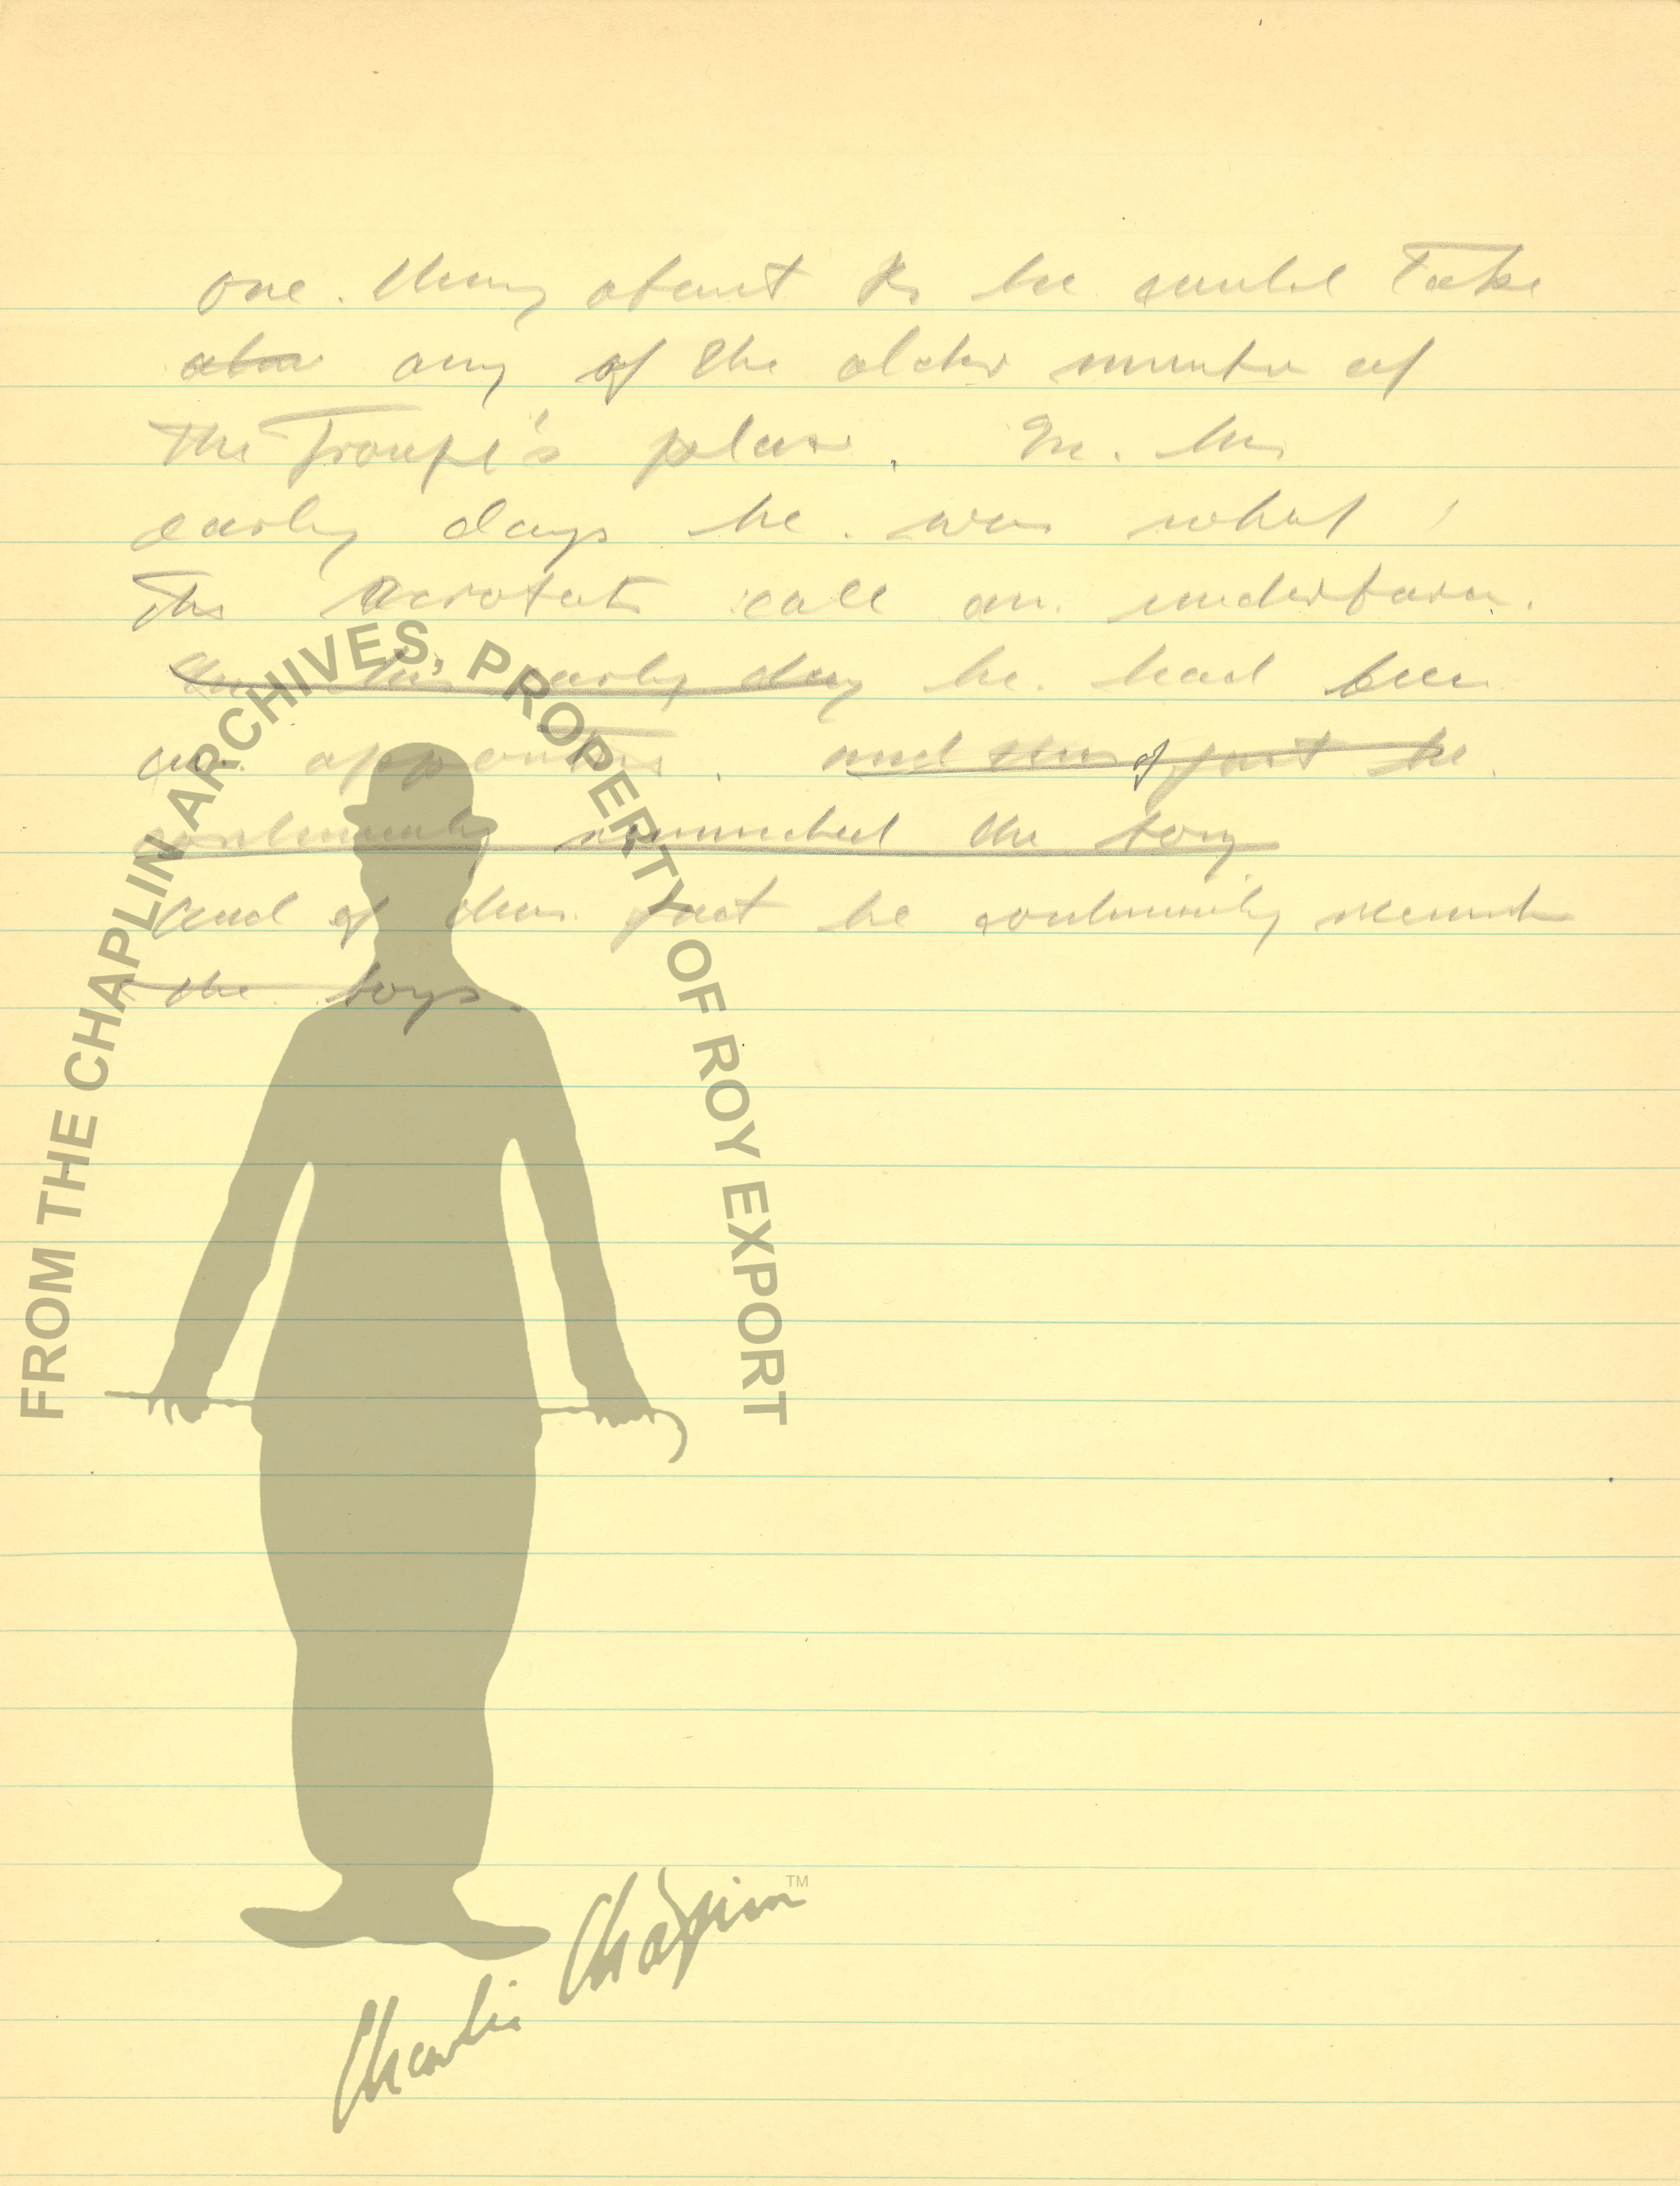 one thing about K. he could take
any of the older members of
the Troupe's place. In his
early days he was what
the Acrobats call an understander.
In his early days he had been
an apprentice. and this fact he
continually reminded the boys
And of this fact he continually remind
the boys.
FROM THE CHAPLIN ARCHIVES, PROPERTY OF ROY EXPORT
Charlie Chaplin TM